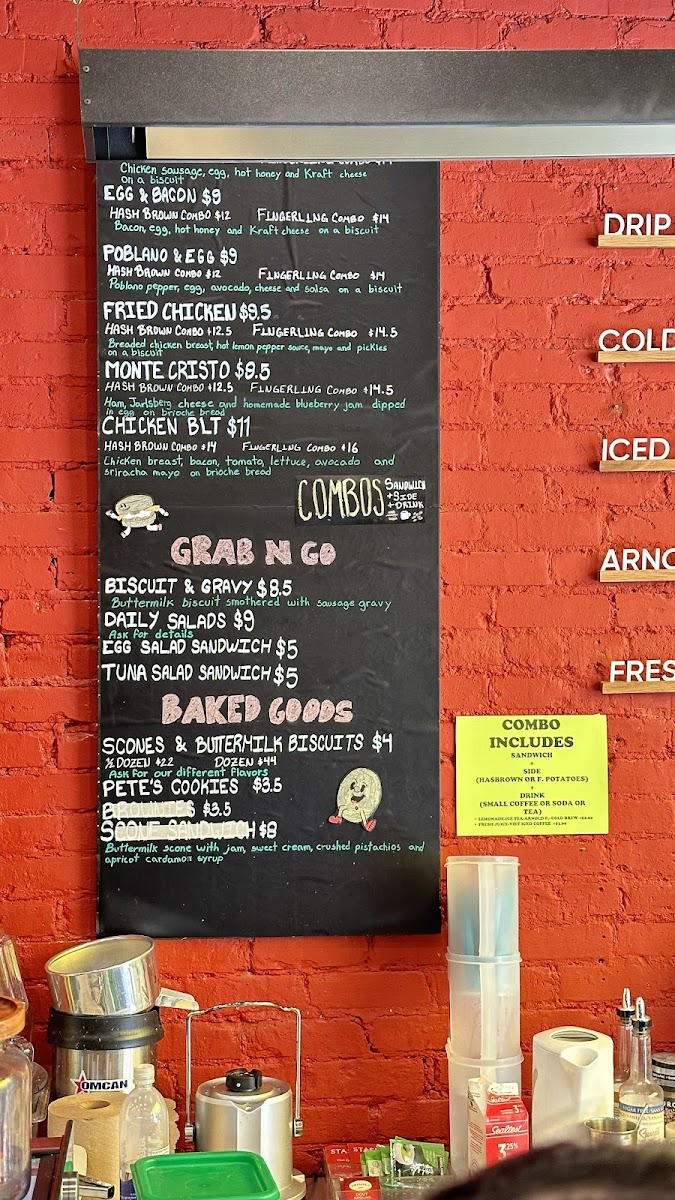 Chicken sausage, egg, hot honey and Kraft cheese
on a biscuit
EGG & BACON $9
HASH BROWN COMBO $12 FINGERLING COMBO $14
Bacon, egg, hot honey and Kraft cheese on a biscuit
POBLANO & EGG $9
HASH BROWN COMBO $12 FINGERLING COMBO $14
Poblano pepper, egg, avocado, cheese and salsa on a biscuit
FRIED CHICKEN $9.5
HASH BROWN COMBO $12.5 FINGERLING COMBO $14.5
Breaded chicken breast, hot lemon pepper sauce, mayo and pickles
on a biscuit
MONTE CRISTO $9.5
HASH BROWN COMBO $12.5 FINGERLING COMBO $14.5
Ham, Jarlsberg cheese and homemade blueberry jam dipped
in egg on brioche bread
CHICKEN BLT $11
HASH BROWN COMBO $14 FINGERLING COMBO $16
Chicken breast, bacon, tomato, lettuce, avocado and
sriracha mayo on brioche bread
COMBOS SANDWICH
+ SIDE
+ DRINK
GRAB N GO
BISCUIT & GRAVY $8.5
Buttermilk biscuit smothered with sausage gravy
DAILY SALADS $9
Ask for details
EGG SALAD SANDWICH $5
TUNA SALAD SANDWICH $5
BAKED GOODS
SCONES & BUTTERMILK BISCUITS $4
½ DOZEN $22 DOZEN $44
Ask for our different flavors
PETE'S COOKIES $3.5
BROWNIES $3.5
SCONE SANDWICH $8
Buttermilk scone with jam, sweet cream, crushed pistachios and
apricot cardamom syrup
DRIP
COLD
ICED
ARNO
FRES
COMBO
INCLUDES
SANDWICH
+
SIDE
(HASBROWN OR F. POTATOES)
+
DRINK
(SMALL COFFEE OR SODA OR
TEA)
OMCAN
Sealtest
3.25%